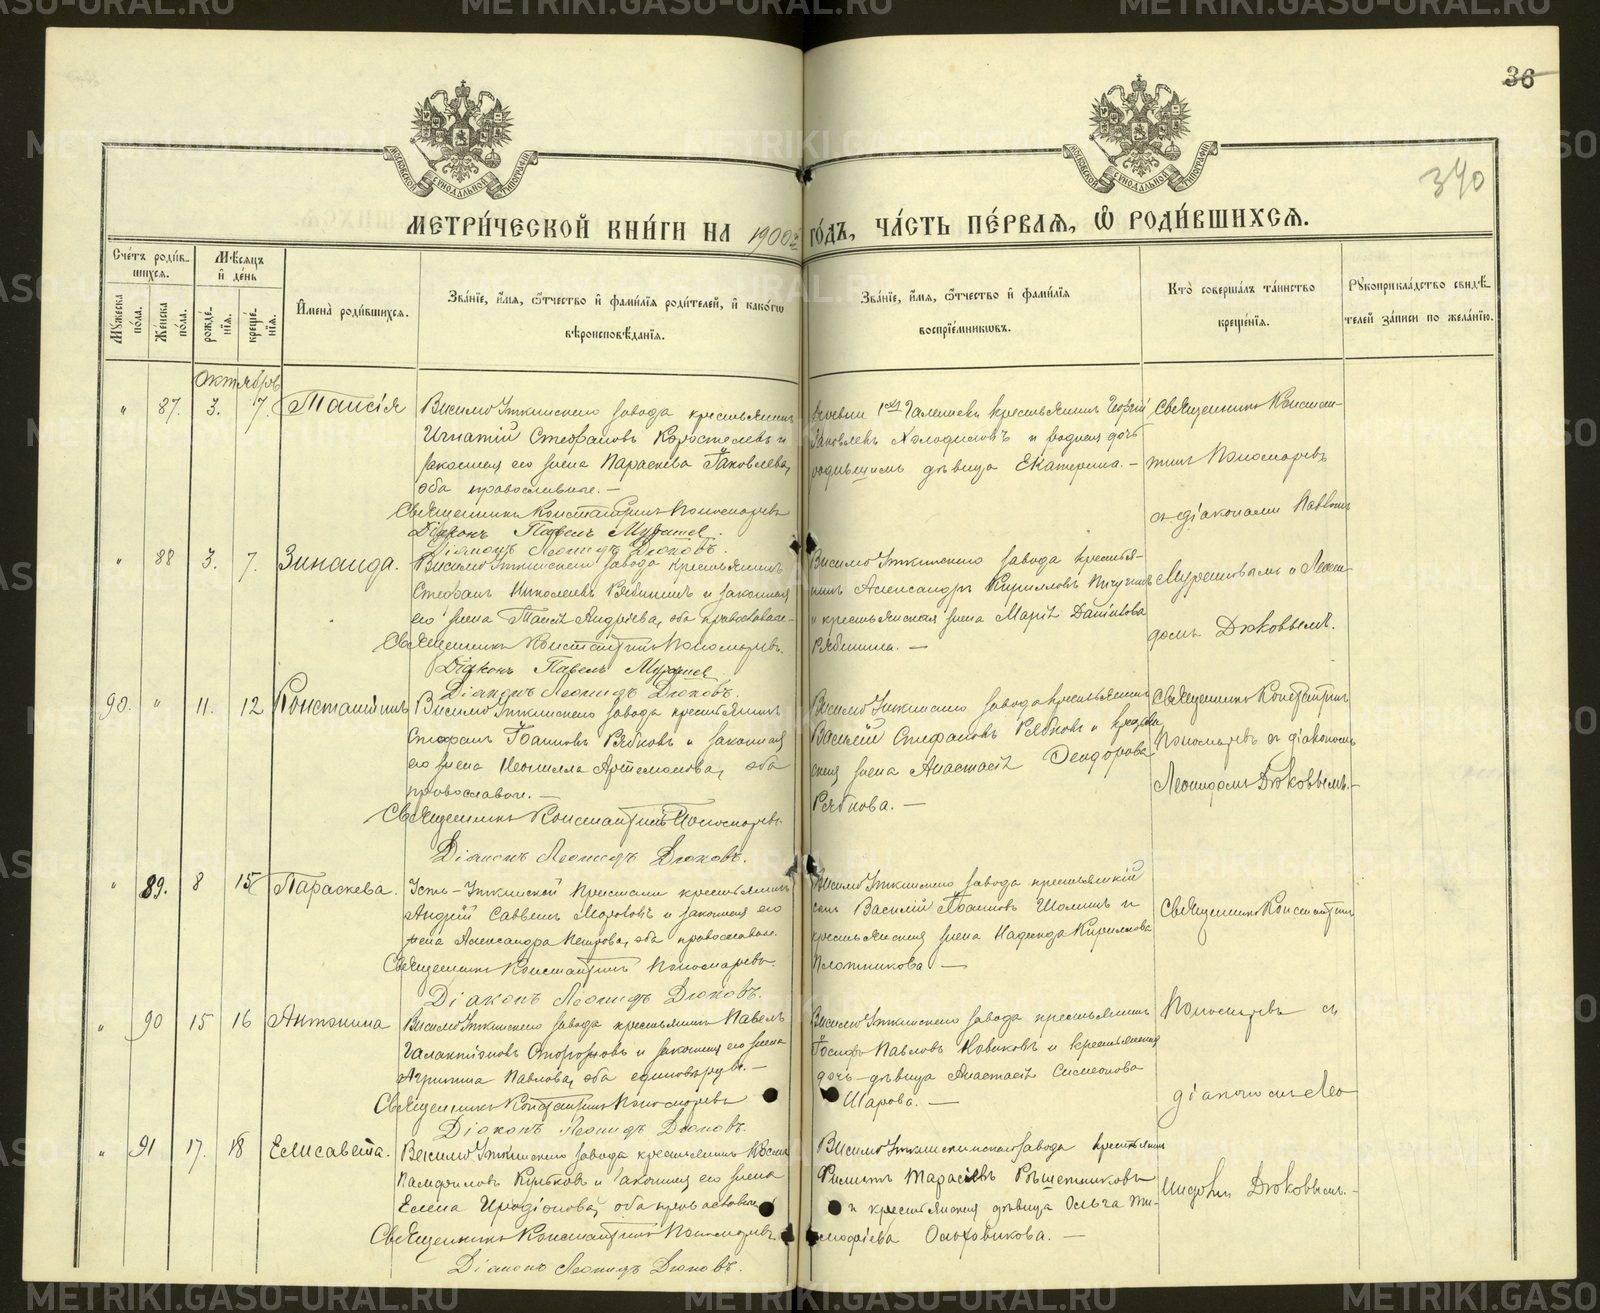 36
340
МОСКОВСКОЙ СУНОДАЛЬНОЙ ТИПОГРАФІИ
МОСКОВСКОЙ СУНОДАЛЬНОЙ ТИПОГРАФІИ
МЕТРИ́ЧЕСКОЙ КНИ́ГИ НА 1900 г ГО́ДЪ, ЧА́СТЬ ПЕ́РВАѦ, Ѽ РОДИ́ВШИХСѦ.
Сче́тъ роди́в-
шихсѧ.
Му́жеска по́ла.
Же́нска по́ла.
Мѣ́сѧцъ
и҆ де́нь
рожде́-
нїѧ.
креще́-
нїѧ.
И҆мена̀ роди́вшихсѧ.
Зва́нїе, и҆́мѧ, ѻ҆́тчество и҆ фами́лїѧ роди́телей, и҆ како́гѡ
вѣроисповѣ́данїѧ.
Зва́нїе, и҆́мѧ, ѻ҆́тчество и҆ фами́лїѧ
воспрїе́мникѡвъ.
Кто̀ соверша́лъ та́инство
креще́нїѧ.
Рꙋкоприкла́дство свидѣ́-
телей за́писи по жела́нїю.
Октябрь
" 87. 3. 7. Таисія
Висимо Уткинскаго завода крестьянинъ
Игнатій Стефановъ Коростелевъ и
законная его жена Параскева Іаковлева,
оба православные. —
Священникъ Константинъ Пономаревъ
Діаконъ Павелъ
Діаконъ Леонидъ Дюковъ.
крестьянинъ Георгій
Іаковлевъ Холодиловъ и родная дочь
дѣвица Екатерина. —
Священникъ Констан-
тинъ Пономаревъ
съ діаконами Павломъ
" 88 3. 7. Зинаида.
Висимо Уткинскаго завода крестьянинъ
Стефанъ Николаевъ Рябининъ и законная
его жена Таисія Андреева, оба православн. —
Священникъ Константинъ Пономаревъ.
Діаконъ Павелъ
Діаконъ Леонидъ Дюковъ.
Висимо Уткинскаго завода крестья-
нинъ Александръ Кирилловъ Пичугинъ
и крестьянская жена Марія Данилова
Рябинина. —
и Леони-
домъ Дюковымъ.
90. " 11. 12 Константинъ
Висимо Уткинскаго завода крестьянинъ
Стефанъ Іоанновъ Рябковъ и законная
его жена Неонилла Артемонова, оба
православн. —
Священникъ Константинъ Пономаревъ.
Діаконъ Леонидъ Дюковъ.
Висимо Уткинскаго завода крестьянинъ
Василій Стефановъ Рябковъ и крестьян
ская жена Анастасія Ѳеодорова
Рябкова. —
Священникъ Константинъ
Пономаревъ съ діакономъ
Леонидомъ Дюковымъ. —
" 89. 8 15 Параскева.
Усть-Уткинской Пристани крестьянинъ
Андрей Саввинъ и законная его
жена Александра Петрова, оба православн.
Священникъ Константинъ Пономаревъ.
Діаконъ Леонидъ Дюковъ.
Висимо Уткинскаго завода крестьянскій
сынъ Василій Іоанновъ и
крестьянская жена Надежда Кириллова
Плотникова —
Священникъ Константинъ
" 90 15 16 Антонина
Висимо Уткинскаго завода крестьянинъ Павелъ
Галактіоновъ и законная его жена
Агриппина Павлова, оба единовѣрцы. —
Священникъ Константинъ Пономаревъ
Діаконъ Леонидъ Дюковъ.
Висимо Уткинскаго завода крестьянинъ
Іосифъ Павловъ Новиковъ и крестьянская
дочь-дѣвица Анастасія Симеонова
Шарова. —
Пономаревъ съ
діакономъ Лео
" 91 17. 18 Елисавета.
Висимо Уткинскаго завода крестьянинъ
Памфиловъ Кульковъ и законная его жена
Елена Иродіонова, оба православные
Священникъ Константинъ Пономаревъ.
Діаконъ Леонидъ Дюковъ.
завода крестьянинъ
Филиппъ Тарасіевъ Рѣшетниковъ
и крестьянская дѣвица Ольга Ти-
моѳеева —
нидомъ Дюковымъ. —
METRIKI.GASO-URAL.RU